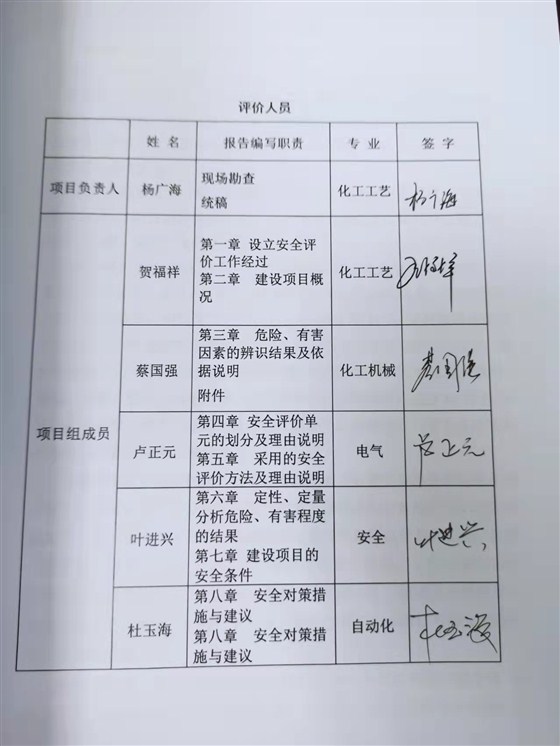 评价人员
姓名 报告编写职责 专业 签字
项目负责人 杨广海 现场勘查 化工工艺 杨广海
统稿
项目组成员
贺福祥 第一章 设立安全评 化工工艺
价工作经过
第二章 建设项目概
况
蔡国强 第三章 危险、有害 化工机械 蔡国强
因素的辨识结果及依
据说明
附件
卢正元 第四章 安全评价单 电气 卢正元
元的划分及理由说明
第五章 采用的安全
评价方法及理由说明
叶进兴 第六章 定性、定量 安全 叶进兴
分析危险、有害程度
的结果
第七章 建设项目的
安全条件
杜玉海 第八章 安全对策措 自动化 杜玉海
施与建议
第八章 安全对策措
施与建议